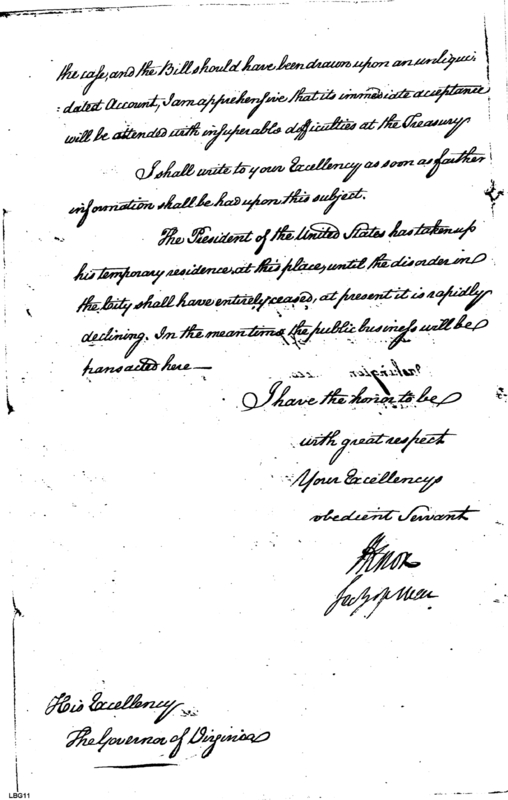 the case, and the Bill should have been drawn upon an unliqui-
:dated Account, I am apprehensive that its immediate acceptance
will be attended with insuperable difficulties at the Treasury
I shall write to your Excellency as soon as farther
information shall be had upon this subject.
The President of the United States has taken up
his temporary residence at this place, until the disorder in
the City shall have entirely ceased, at present it is rapidly
declining. In the mean time the public business will be
transacted here—
I have the honor to be
with great respect
Your Excellencys
obedient Servant
HKnox
Secy of War
His Excellency
The Governor of Virginia
LBG11